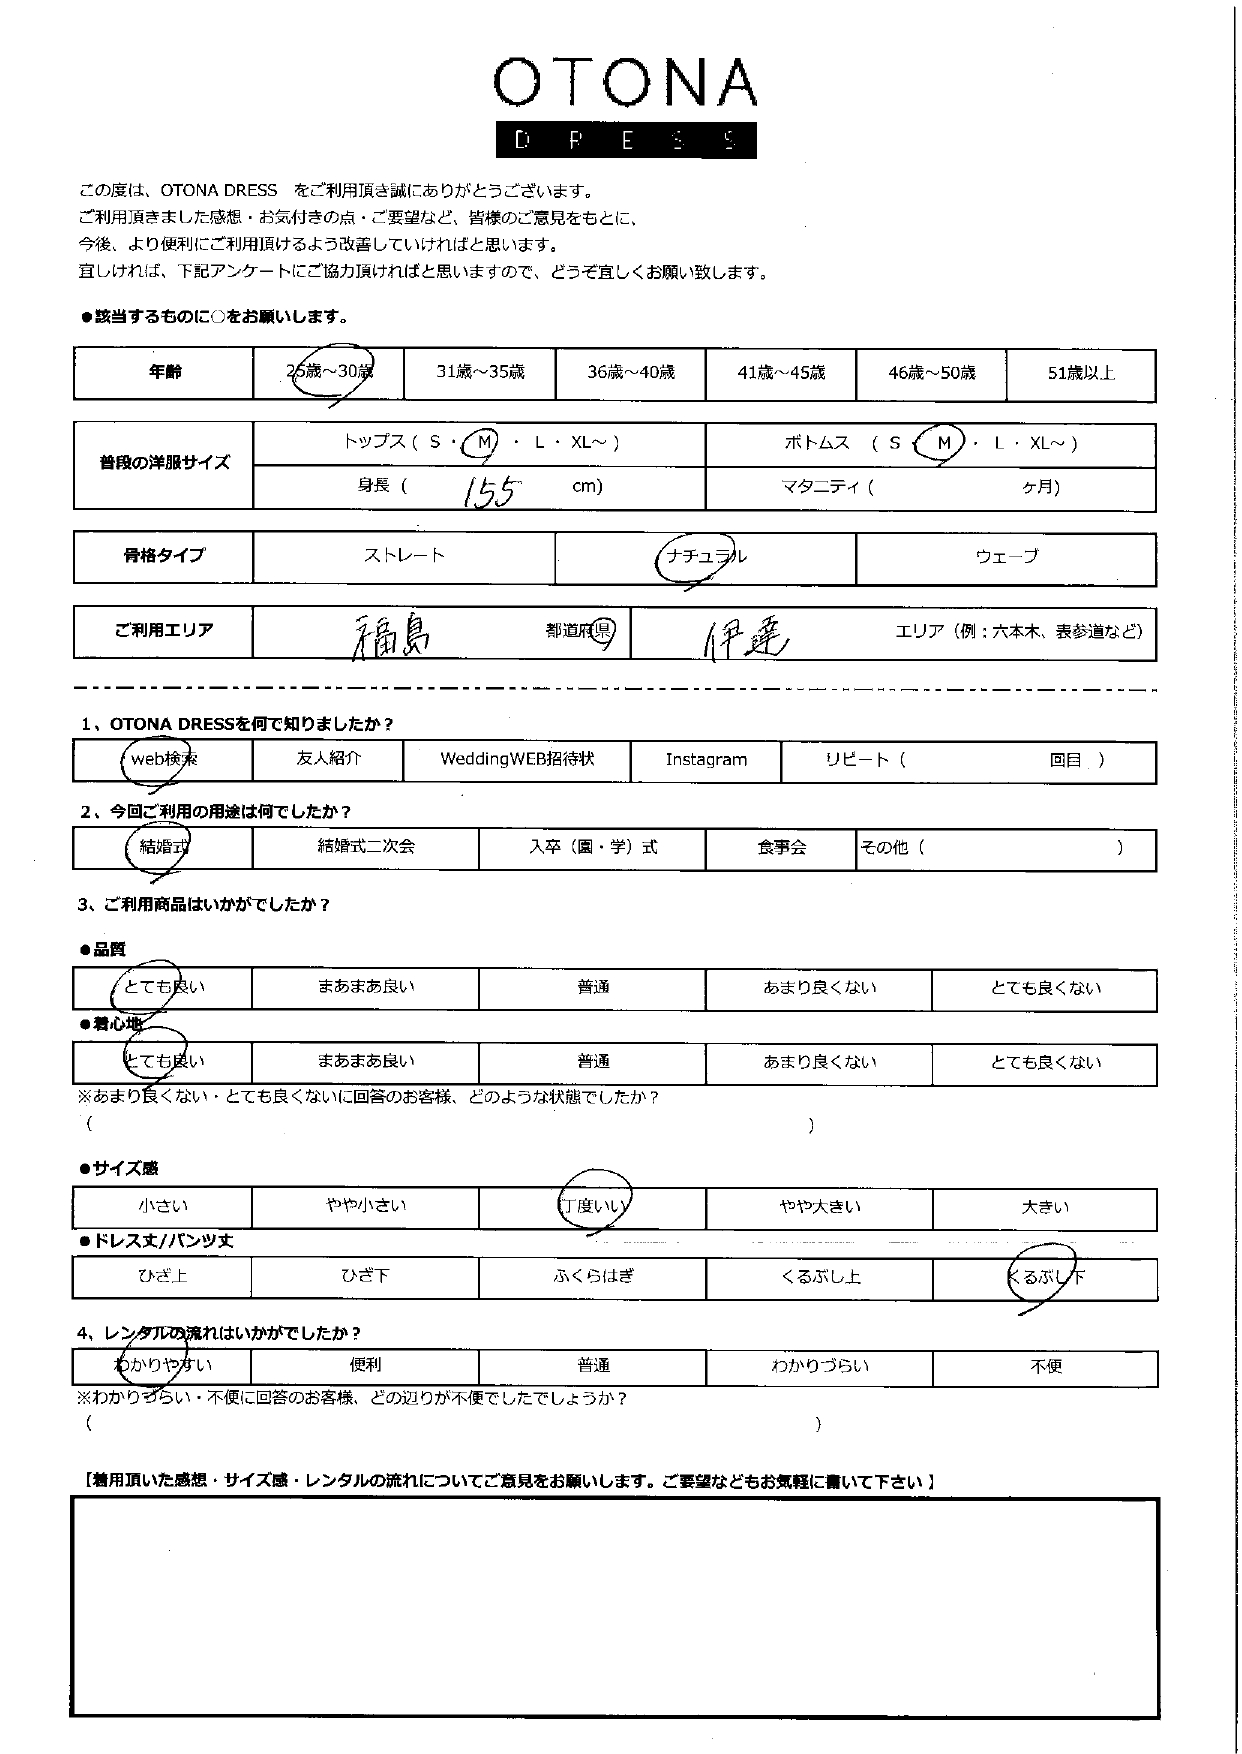 OTONA
DRESS
この度は、OTONA DRESS　をご利用頂き誠にありがとうございます。
ご利用頂きました感想・お気付きの点・ご要望など、皆様のご意見をもとに、
今後、より便利にご利用頂けるよう改善していければと思います。
宜しければ、下記アンケートにご協力頂ければと思いますので、どうぞ宜しくお願い致します。
●該当するものに○をお願いします。
年齢 25歳～30歳 31歳～35歳 36歳～40歳 41歳～45歳 46歳～50歳 51歳以上
普段の洋服サイズ トップス ( S ・ M ・ L ・ XL～ ) ボトムス ( S ・ M ・ L ・ XL～ )
身長 ( 155 cm) マタニティ ( ヶ月)
骨格タイプ ストレート ナチュラル ウェーブ
ご利用エリア 福島 都道府県 伊達 エリア（例：六本木、表参道など）
1、OTONA DRESSを何で知りましたか？
web検索 友人紹介 WeddingWEB招待状 Instagram リピート ( 回目 )
2、今回ご利用の用途は何でしたか？
結婚式 結婚式二次会 入卒（園・学）式 食事会 その他 ( )
3、ご利用商品はいかがでしたか？
●品質
とても良い まあまあ良い 普通 あまり良くない とても良くない
●着心地
とても良い まあまあ良い 普通 あまり良くない とても良くない
※あまり良くない・とても良くないに回答のお客様、どのような状態でしたか？
( )
●サイズ感
小さい やや小さい 丁度いい やや大きい 大きい
●ドレス丈/パンツ丈
ひざ上 ひざ下 ふくらはぎ くるぶし上 くるぶし下
4、レンタルの流れはいかがでしたか？
わかりやすい 便利 普通 わかりづらい 不便
※わかりづらい・不便に回答のお客様、どの辺りが不便でしたでしょうか？
( )
【着用頂いた感想・サイズ感・レンタルの流れについてご意見をお願いします。ご要望などもお気軽に書いて下さい】